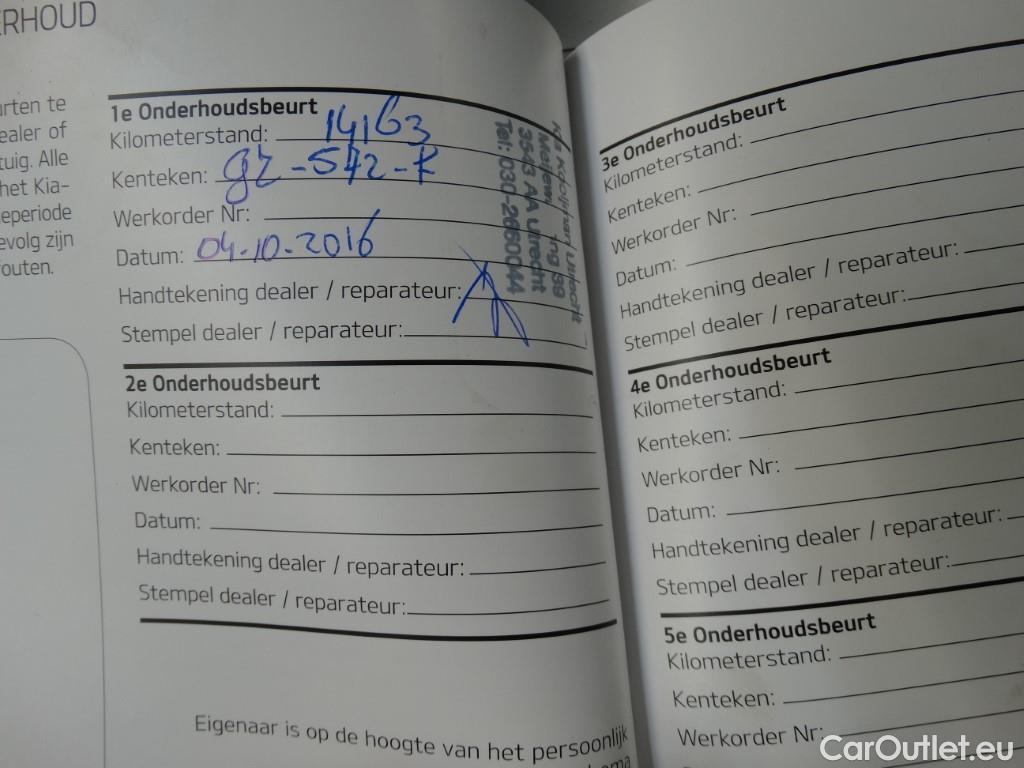 ERHOUD
urten te
ealer of
tuig. Alle
het Kia-
eperiode
evolg zijn
outen.
1e Onderhoudsbeurt
Kilometerstand: 14163
Kenteken: gz-542-R
Werkorder Nr:
Datum: 04-10-2016
Handtekening dealer / reparateur:
Stempel dealer / reparateur:
3543 AA Utrecht
Tel: 030-2650044
2e Onderhoudsbeurt
Kilometerstand:
Kenteken:
Werkorder Nr:
Datum:
Handtekening dealer / reparateur:
Stempel dealer / reparateur:
Eigenaar is op de hoogte van het persoonlijk
3e Onderhoudsbeurt
Kilometerstand:
Kenteken:
Werkorder Nr:
Datum:
Handtekening dealer / reparateur:
Stempel dealer / reparateur:
4e Onderhoudsbeurt
Kilometerstand:
Kenteken:
Werkorder Nr:
Datum:
Handtekening dealer / reparateur:
Stempel dealer / reparateur:
5e Onderhoudsbeurt
Kilometerstand:
Kenteken:
Werkorder Nr:
CarOutlet.eu